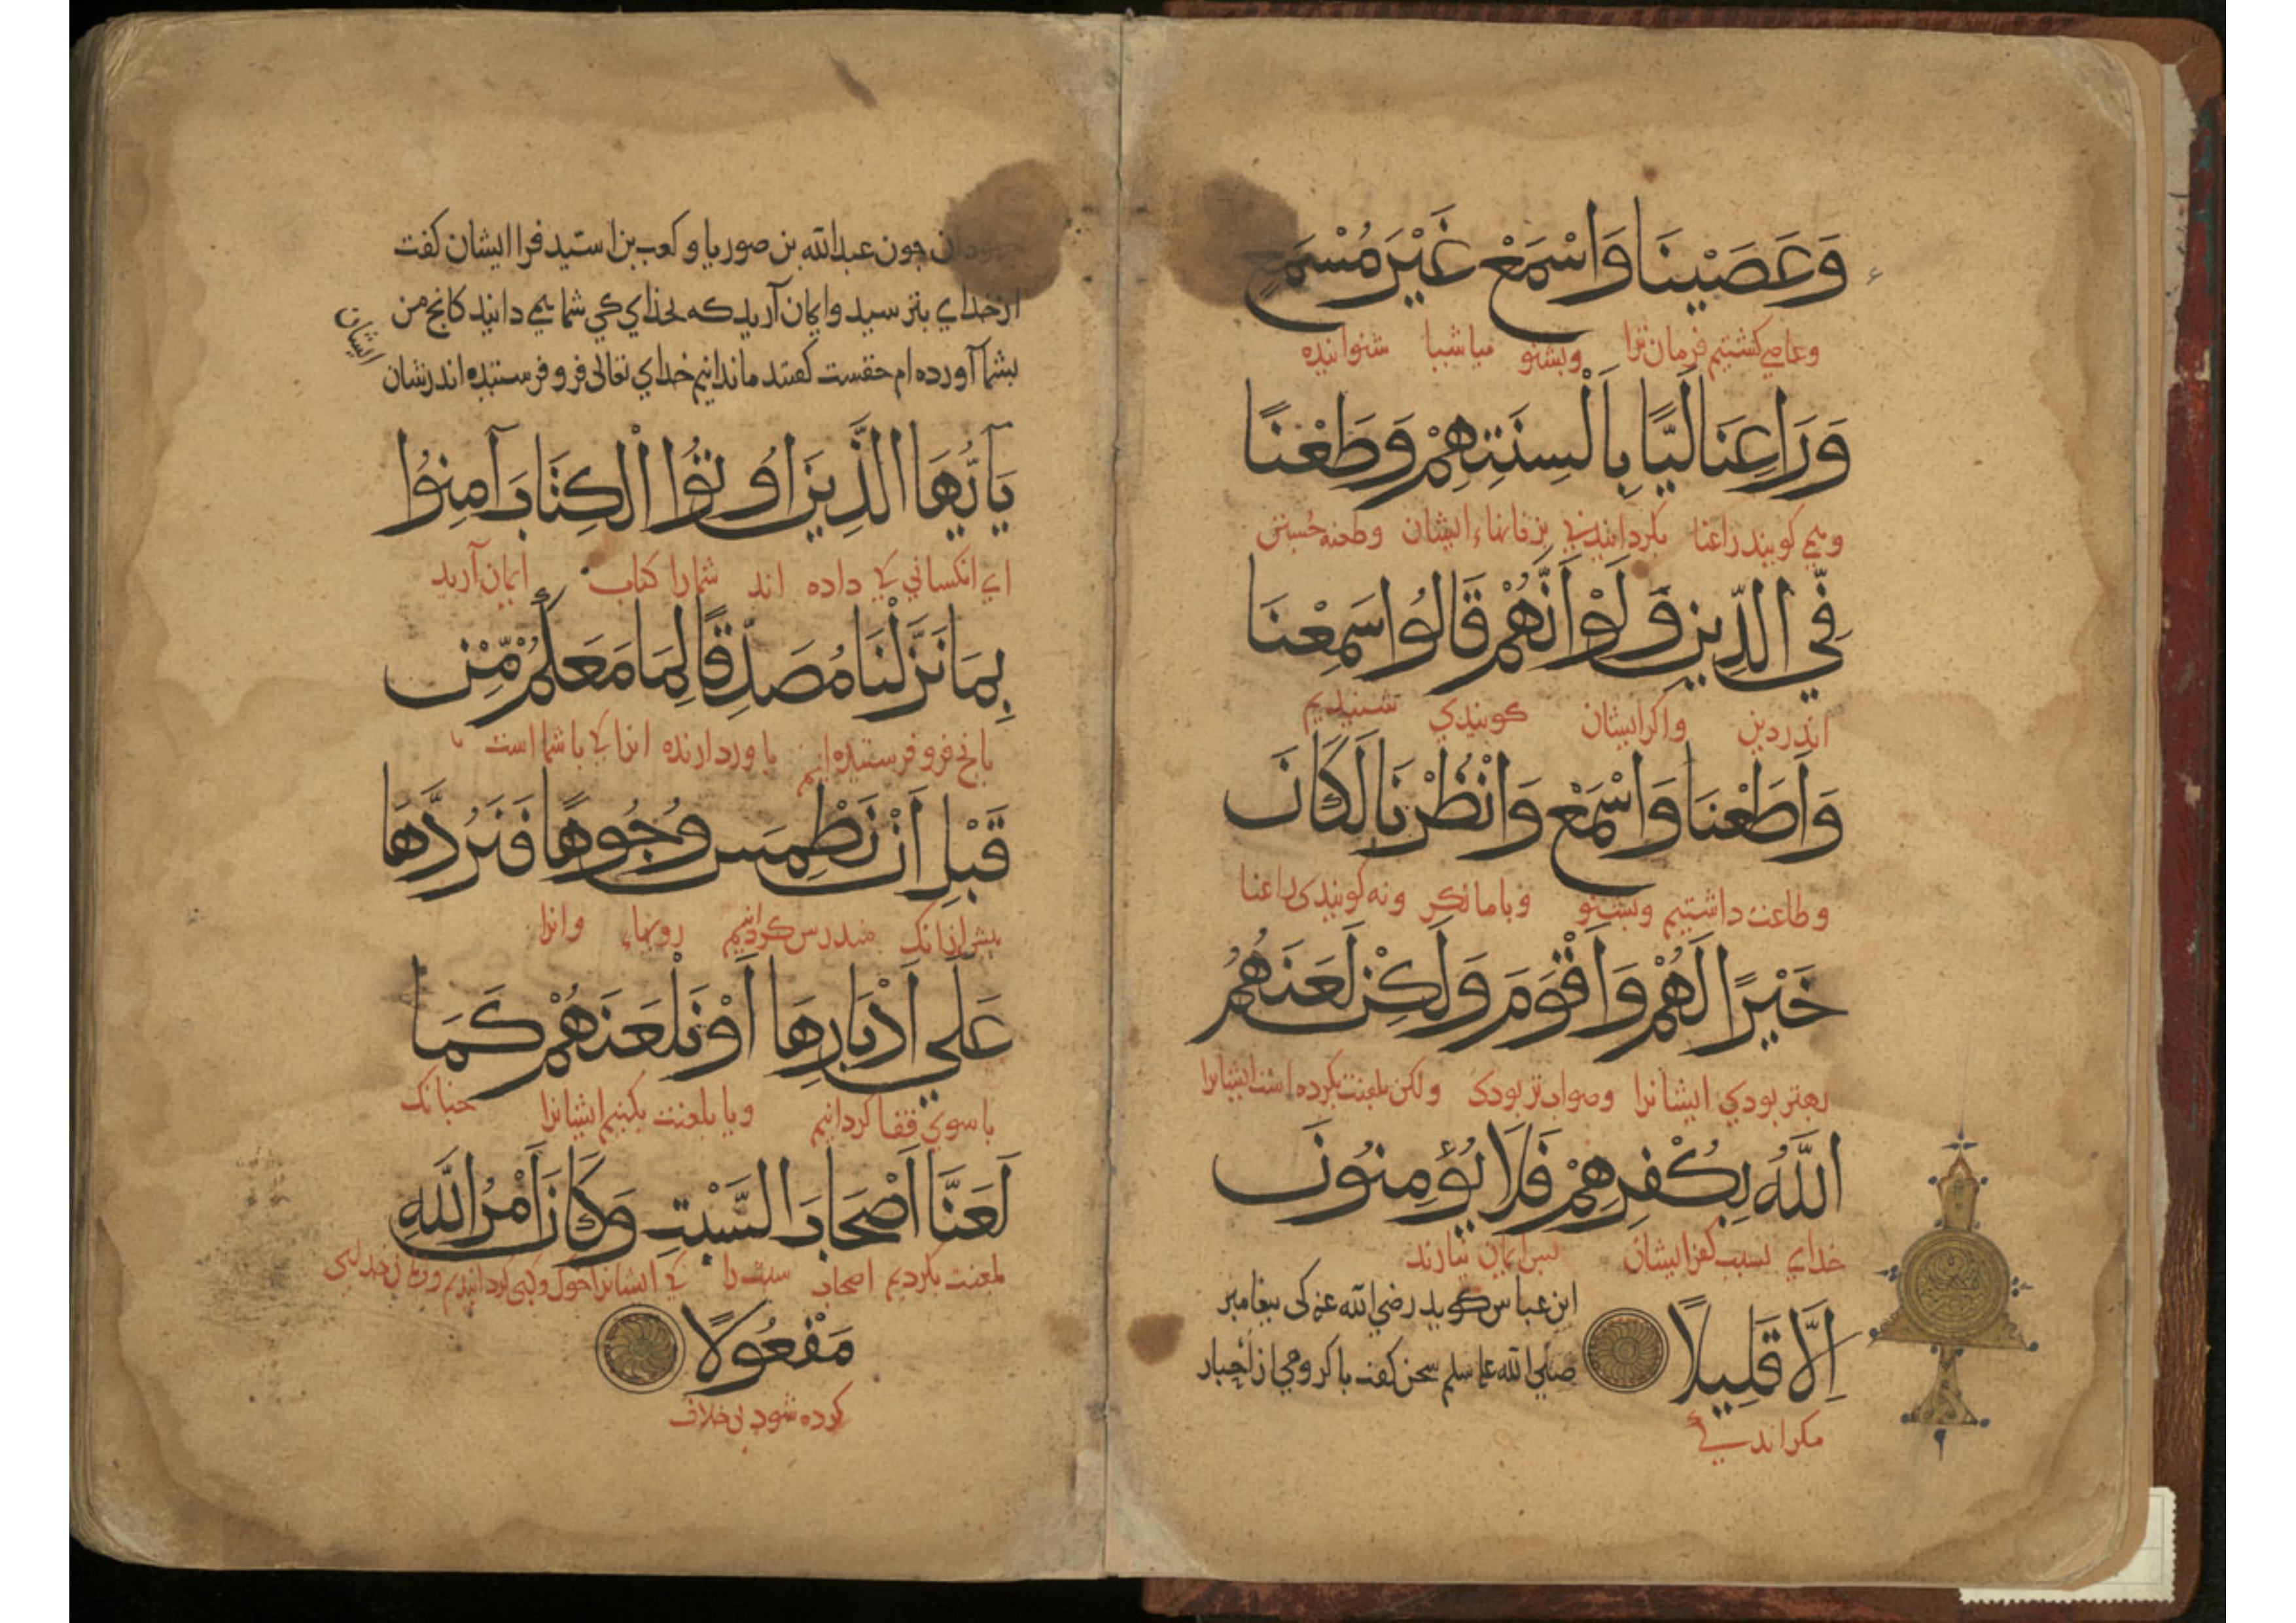 وَعَصَيْنَا وَاسْمَعْ غَيْرَ مُسْمَعٍ
وعاصی کشتیم فرمان ترا وبشنو میا شبا شنوانیده
وَرَاعِنَا لَيًّا بِأَلْسِنَتِهِمْ وَطَعْنًا
و می کویند راعنا بکردانیدنی بزفانهاء ایشان وطعنه جستنی
فِي الدِّينِ وَلَوْ أَنَّهُمْ قَالُوا سَمِعْنَا
اندر دین واکر ایشان کویندی شنیدیم
وَأَطَعْنَا وَاسْمَعْ وَانْظُرْنَا لَكَانَ
وطاعت داشتیم وبشنو وبامانکر ونه کویندی راعنا
خَيْرًا لَهُمْ وَاَقْوَمَ وَلَكِنْ لَعَنَهُمُ
بهتر بودی ایشانرا وصواب تر بودی ولکن بلعنت بکرده است ایشانرا
اللَّهُ بِكُفْرِهِمْ فَلَا يُؤْمِنُونَ
خدای بسبب کفر ایشان بس ایمان نیارند
اِلَّا قَلِيلًا
مکر اندکی
ابن عباس کوید رضی الله عنه کی بیغامبر
صلی الله علیه سلم سخن کفت با کروهی از احبار
جهودان جون عبدالله بن صوریا و کعب بن استید فرا ایشان کفت
از خدای بترسید وایمان آرید که بخدای کی شما همی دانید کانج من
ایشان
بشما آورده ام حقست کفتند ما ندانیم خدای تعالی فرو فرستیده اندرشان
يَا أَيُّهَا الَّذِينَ اُوتُوا الْكِتَابَ آمِنُوا
ای انکسانی کی داده اند شمارا کتاب ایمان آرید
بِمَا نَزَّلْنَا مُصَدِّقًا لِمَا مَعَكُمْ مِّنْ
بانج فرو فرستیده ایم باوردارنده انرا کی با شما است
قَبْلِ اَنْ نَطْمِسَ وُجُوهًا فَنَرُدَّهَا
بیش ازانک مندرس کردانیم رویهاء وانرا
عَلَى اَدْبَارِهَا اَوْ نَلْعَنَهُمْ كَمَا
باسوی قفا کردانیم ویا بلعنت بکنیم ایشانرا جنانک
لَعَنَّا اَصْحَابَ السَّبْتِ وَكَانَ اَمْرُ اللَّهِ
بلعنت بکردیم اصحاب سبت را کی ایشانرا خوک وکبی کردانیدیم
مَفْعُولًا
کرده شود بی خلاف